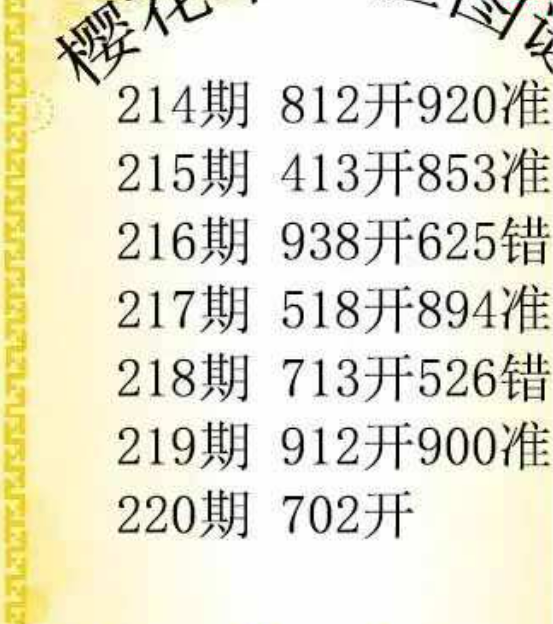 樱花
214期 812开920准
215期 413开853准
216期 938开625错
217期 518开894准
218期 713开526错
219期 912开900准
220期 702开